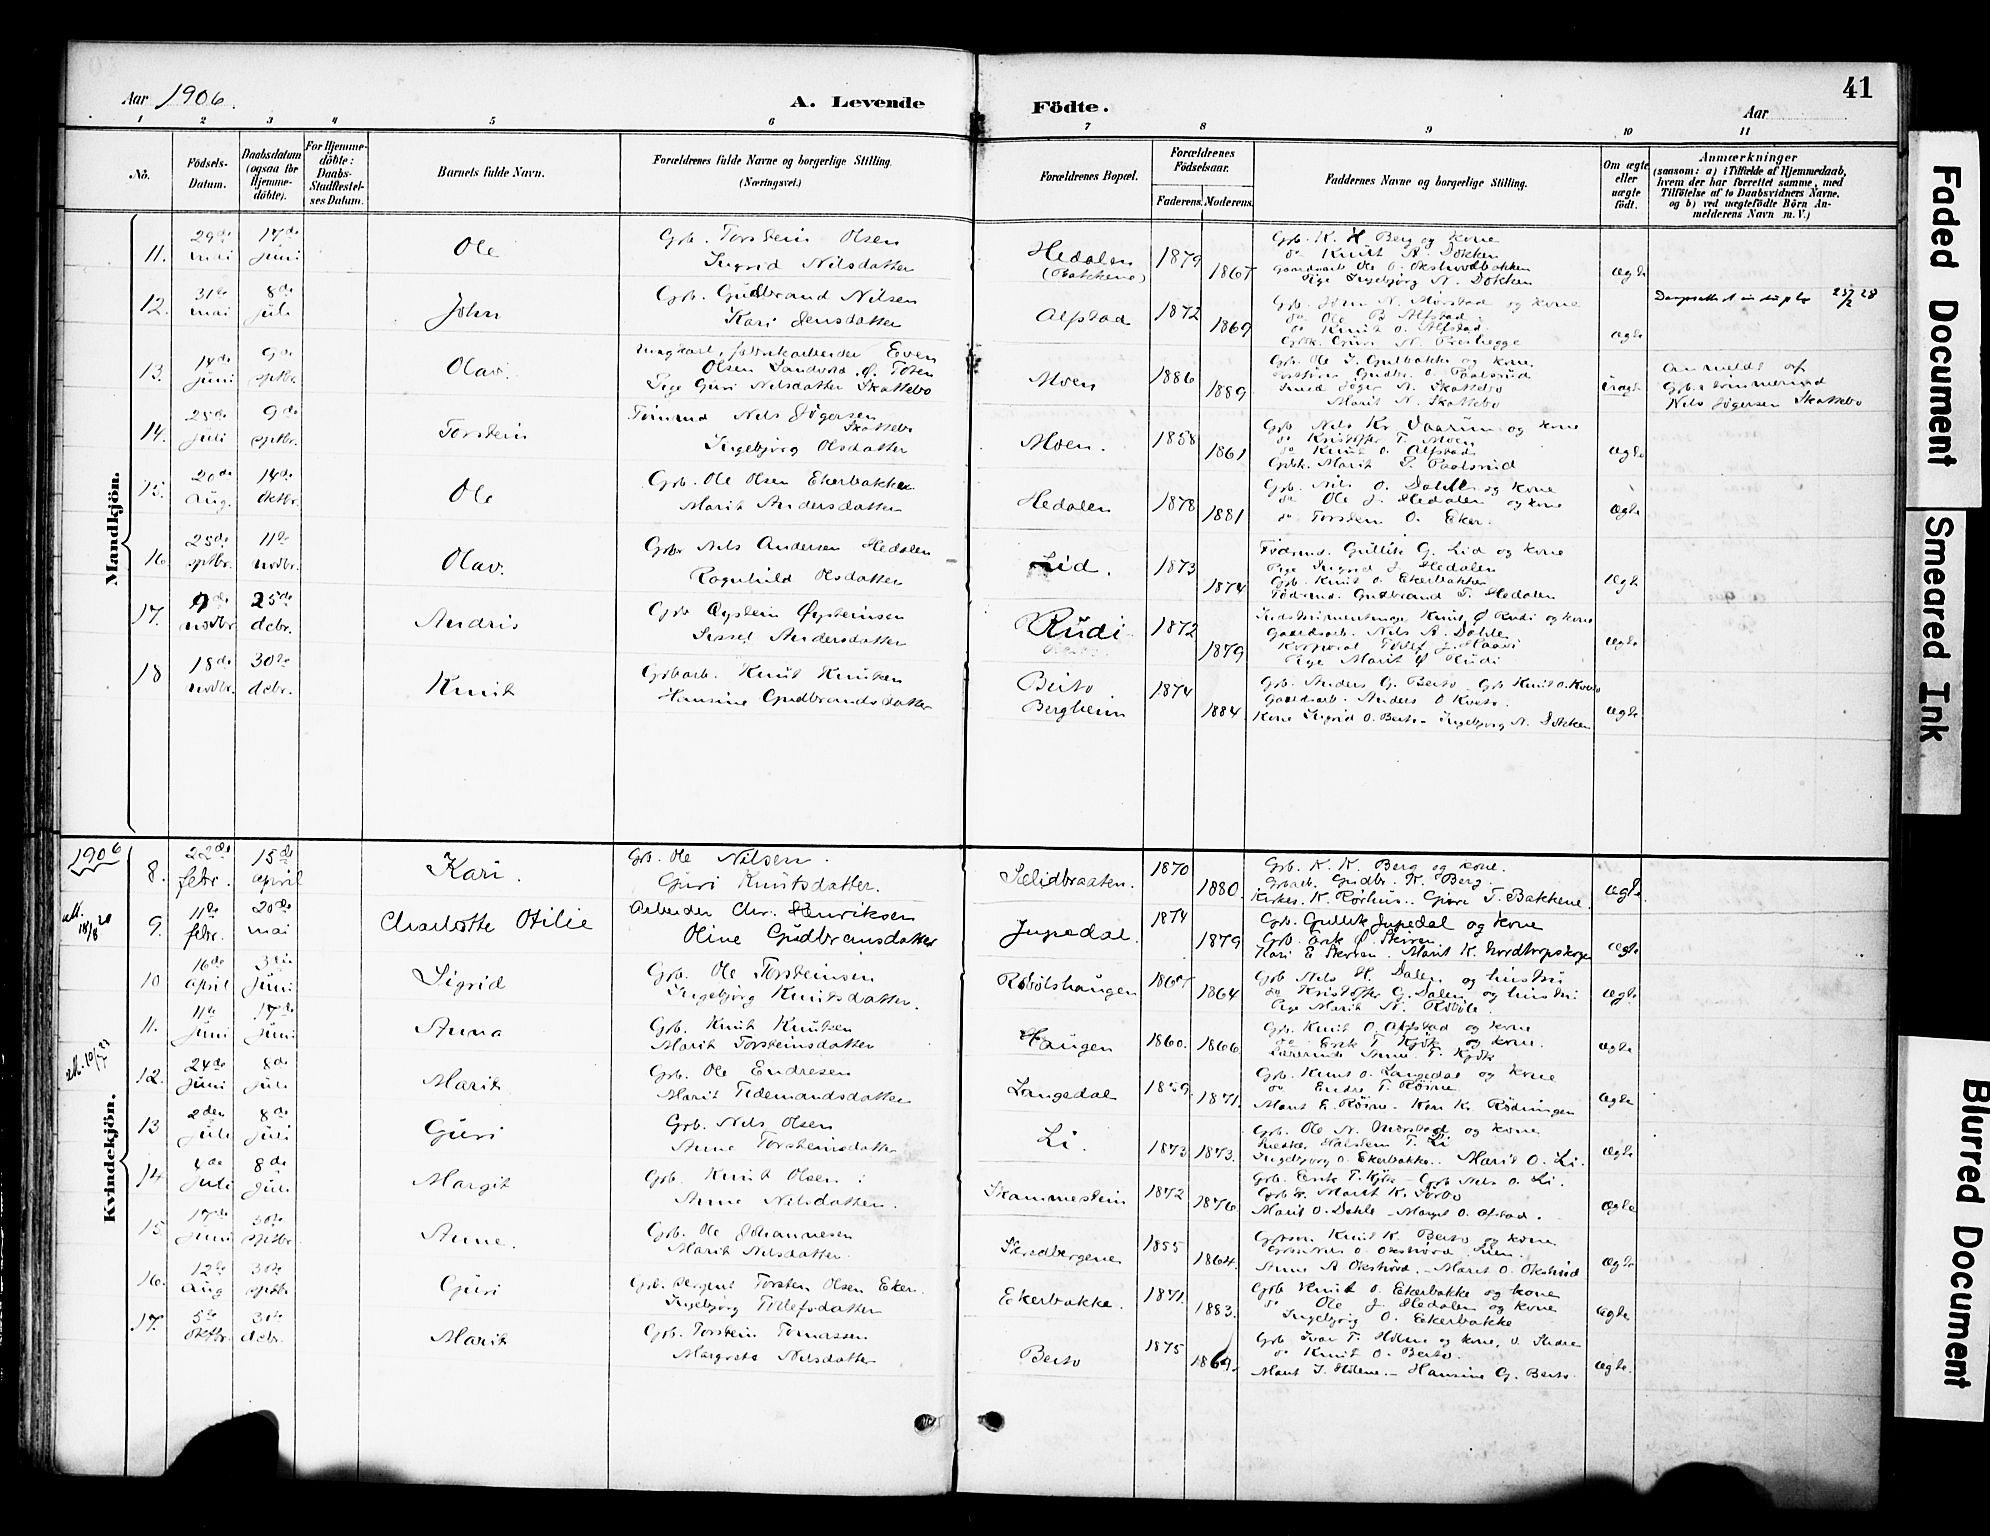 41
Aar 1906.
A. Levende Födte.
Aar
1 2 3 4 5 6 7 8 9 10 11
No.
Födsels-Datum.
Daabsdatum (ogsaa for Hjemme-döbte).
For Hjemme-döbte: Daabs-Stadfestel-ses Datum.
Barnets fulde Navn.
Forældrenes fulde Navne og borgerlige Stilling.
(Næringsvei.)
Forældrenes Bopæl.
Forældrenes Födselsaar.
Faderens. Moderens.
Faddernes Navne og borgerlige Stilling.
Om ægte eller uægte födt.
Anmærkninger
(saasom: a) i Tilfælde af Hjemmedaab, hvem der har forrettet samme, med Tilföielse af to Daabsvidners Navne. og b) ved uægtefödte Börn Anmelderens Navn m. V.)
Mandkjön.
11. 29de mai 17de juni Ole
Grb. Torstein Olsen
Ingrid Nilsdatter
Hedalen (Bakkene) 1879 1867
Grb. K. H. Berg og kone
do Knut A. Dokken
Gaardsarb. Ole O. Okshovdbakken
Pige Ingebjørg N. Dokken
ægte
12. 31te mai 8de juli John
Grb. Gudbrand Nilsen
Kari Jensdatter
Alfstad 1872 1869
Grb. John N. Mørstad og kone
do Ole B. Alfstad
do Knut O. Alfstad
Guri N.
ægte
25/2 28
13. 14de juni 9de septbr. Olav.
Ungkarl, fabrikarbeider Even
Olsen Sandvold Ø. Toten
Pige Guri Nilsdatter Skattebo
Moen 1886 1889
Grb. Ole I. Gulbakke og kone
Gudbr. O. Paalsrud
A. Skattebo
Marit N. Skattebo
uægte
Anmeldt af
Grb.
Nils Jøgersen Skattebo
14. 25de juli 9de septbr. Torstein
Tømmd Nils Jøgersen
Skattebo
Ingebjørg Olsdatter
Moen. 1858 1861
Grb. Nils Kr. og kone
do Kristoffer T. Moen
do Knut O. Alfstad
Marit P. Paalsrud
ægte
15. 20de aug. 14de oktbr. Ole
Grb. Ole Olsen Ekerbakken
Marit Andersdatter
Hedalen 1878 1881
Grb. Nils O. Dahle og kone
do Ole J. Hedalen og kone
do Torstein O. Eker.
ægte
16. 25de septbr. 11te novbr. Olav.
Grb. Nils Andersen Hedalen
Ragnhild Olsdatter
Lid. 1873 1874
Födsmd. Gullik G. Lid og kone
Pige Ingrid J. Hedalen
Grb. Knut O. Ekerbakken
Födsmd. Gudbrand T. Hedalen
ægte
17. 9de novbr. 25de debr. Andris
Grb. Øystein Øysteinsen
Sissel Andersdatter
Rudi 1872 1879
Knut Ø. Rudi og kone
Gaardsarb. Nils A. Dahle
Korporal Tidlef J. Haavi
Pige Marit Ø. Rudi
ægte
18 18de novbr. 30te debr. Knut
Grbarb. Knut Knutsen
Hansine Gudbrandsdatter
Beito Bergheim 1874 1884.
Grb. Anders G. Beito - Grb Knut O. Kveto
Gaardsarb. Anders O Kveto.
Kone Ingrid O. Beito - Ingebjørg N. Dokken
ægte
1906
Kvindekjön.
8. 22de febr. 15de april Kari.
Grb. Ole Nilsen.
Guri Knutsdatter.
Sælidbraaten. 1870 1880.
Grb. K. K. Berg og kone.
Grbarb. Gudbr. K. Berg.
Kirkes. K. Rørhus. Guri T. Bakkene.
ægte
att. 18/8 20
9. 11te febr. 20de mai Charlotte Otilie
Arbeider Chr. Henriksen
Oline Gudbransdatter
Jupedal. 1874 1879
Grb. Gullik Jupedal og kone
Grb. Erik Ø. Skirren.
Kari E Skirren. Marit K. Nordtorpskogen
ægte
10 16de april 3die juni Sigrid
Grb. Ole Torsteinsen
Ingebjørg Knutsdatter.
Robølshaugen 1865 1864
Grb. Nils H. Dalen og hustru
do Kristoffer G. Dalen og hustru
Pige Marit N. Robøle.
ægte
11. 11te juni 17de juni Anna
Grb. Knut Knutsen
Marit Torsteinsdatter
Haugen 1860. 1866
Grb. Knut O. Alfstad og kone
do Erik T. Kjøk og kone.
Lærerinde Anne T. Kjøk
ægte
att. 10/7 21
12. 24de juni 8de juli Marit
Grb. Ole Endresen
Marit Tidemandsdatter
Langedal 1859. 1871.
Grb. Knut O. Langedal og kone
do Endre T. Röine
Marit E. Röine - Kr. Rödningen
ægte
13 2den juli 8de juli Guri
Grb. Nils Olsen
Anne Torsteinsdatter
Li. 1873 1873.
Grb. Ole N. Mørstad og kone
Halstein T. Li
Ingebjørg O. Ekerbakke. Marit O. Li.
ægte
14 4de juli 8de juli Margit
Grb. Knut Olsen
Anne Nilsdatter.
Skammestein 1872 1876
Grb. Erik T. Kjøk - Grb Nels O. Li.
Marit K. Sørbo
Marit O. Dahle - Margit O. Afstad.
ægte
15 17de juni 30te septbr. Anne.
Grb. Ole Johannesen
Marit Nilsdatter
Skredbergene 1855 1864.
Knut K. Beito og kone
Nils O. Okshövd
Anne A Okshövd. - Marit O. Okshövd
ægte
16. 12te aug 30te septbr Guri
Grb. Sergent Torsten Olsen Eker.
Ingebjørg Tidlefsdatter
Ekerbakke. 1871. 1883.
Grb Knut O. Ekerbakke og kone
do Ole J. Hedalen og kone
Ingebjørg O. Ekerbakke
ægte
17. 5te oktbr. 31te debr. Marit
Grb. Torstein Tomassen
Margrete Nilsdatter
Beito 1875 1869.
Grb Ivar T. Hølme og kone, v. Slidre
do Knut O. Beito.
Marit I. Hølene. - Hansine G. Beito.
ægte
Faded Document
Smeared Ink
Blurred Document